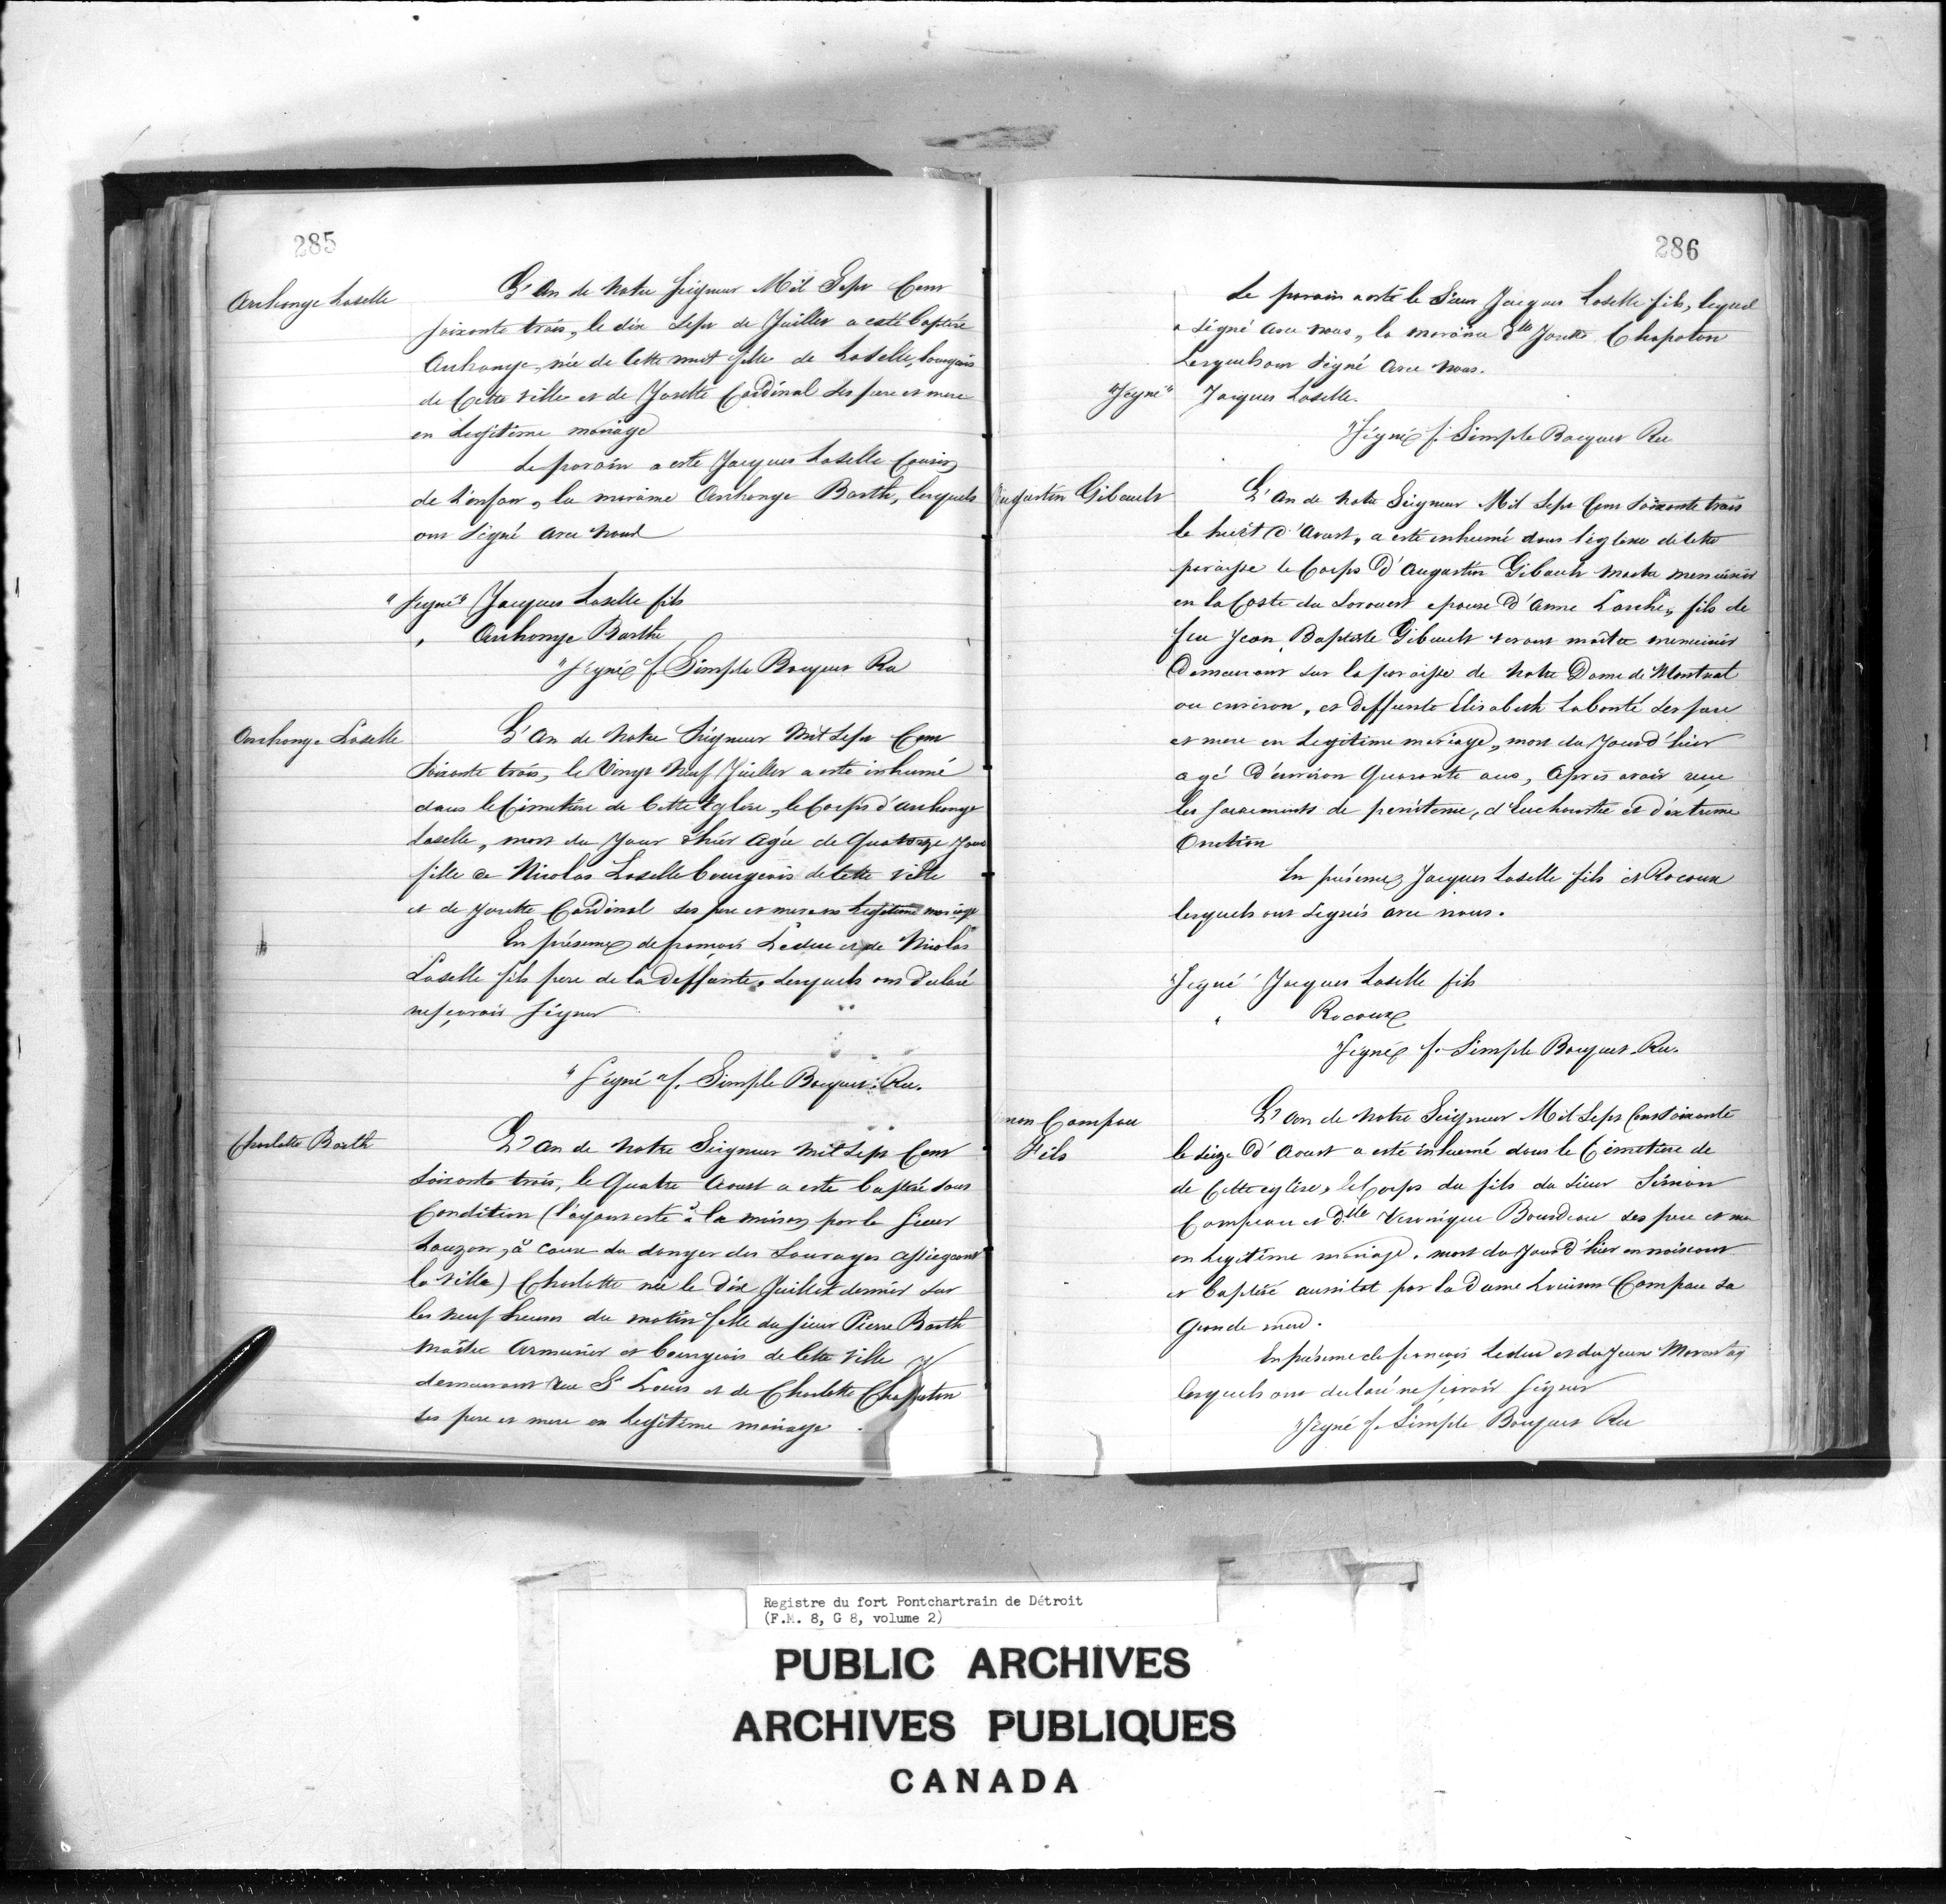 285
Archange Laselle
L'An de Notre Seigneur Mil Sept Cent
soixante trois, le dix sept de Juillet a esté baptisée
Archange, née de Cette nuit fille de Laselle, bourgeois
de Cette ville et de Josette Cardinal ses pere et mere
en Legitime mariage
Le parain a esté Jacques Laselle Cousin
de l'enfant, la maraine Archange Barth, lesquels
ont Signé avec nous
"Signé" Jacques Laselle fils
" Archange Barthe
"Signé f. Simple Bocquet Rec
Archange Laselle
L'An de Notre Seigneur Mil Sept Cent
Soixante trois, le Vingt Neuf Juillet a esté inhumé
dans le Cimetiere de Cette Eglise, le Corps d'archange
Laselle, mort du Jour d'hier Agée de Quatorze Jours
fille de Nicolas Laselle bourgeois de Cette ville
et de Josette Cardinal ses pere et mere en Legitime mariage
En présence de françois Leduc et de Nicolas
Laselle fils pere de la Deffunte, lesquels ont déclaré
ne sçavoir signer
"Signé" f. Simple Bocquet. Rec.
Charlotte Barth
L'An de Notre Seigneur Mil Sept Cent
Soixante trois, le Quatre Aoust a esté baptisée sous
Condition (l'ayant esté à la maison par le Sieur
Lauzon, à cause du danger des Sauvages assiegeant
la Ville) Charlotte née le Dix Juillet dernier sur
les neuf heures du matin fille du Sieur Pierre Barth
Maître Armurier et bourgeois de Cette Ville
demeurant rue St Louis et de Charlotte Chapaton
ses pere et mere en Legitime mariage.
286
Le parain a esté le Sieur Jacques Laselle fils, lequel
a Signé avec nous, la maraine Dlle Josette Chapaton
Lesquels ont Signé avec nous.
"Signé" Jacques Laselle.
"Signé f. Simple Bocquet Rec
Augustin Gibault
L'An de Notre Seigneur Mil Sept Cent Soixante trois
le huit d'Aoust, a esté inhumé dans l'église de Cette
paroisse le Corps d'Augustin Gibault Maitre menuisier
en la Coste du Sorouest epoux d'Anne Larche, fils de
feu Jean Baptiste Gibault vivant maitre menuisier
Demeurant sur la paroisse de Notre Dame de Montreal
ou environ, et deffunte Elisabeth Labonté ses pere
et mere en Legitime mariage, mort du Jour d'hier
agé d'environ Quarante ans, Apres avoir reçu
les sacrements de penitence, d'Eucharistie et d'extreme
Onction
En présence Jacques Laselle fils et Rocoux
lesquels ont Signés avec nous.
"Signé" Jacques Laselle fils
" Rocoux
Signé f. Simple Bocquet. Rec.
mon Campau
Fils
L'An de Notre Seigneur Mil Sept Cent Soixante
le seize d'Aoust a esté inhumé dans le Cimetiere de
de Cette eglise, le Corps du fils du Sieur Simon
Campeau et Dlle Veronique Bourdeau ses pere et me
en Legitime mariage, mort du Jour d'hier en naissant
et baptisé aussitot par la Dame Campau sa
Grande mere.
En présence de françois Leduc et du Jeune
lesquels ont declaré ne sçavoir signer
"Signé f. Simple Bocquet Rec
Registre du fort Pontchartrain de Détroit
(F.M. 8, G 8, volume 2)
PUBLIC ARCHIVES
ARCHIVES PUBLIQUES
CANADA